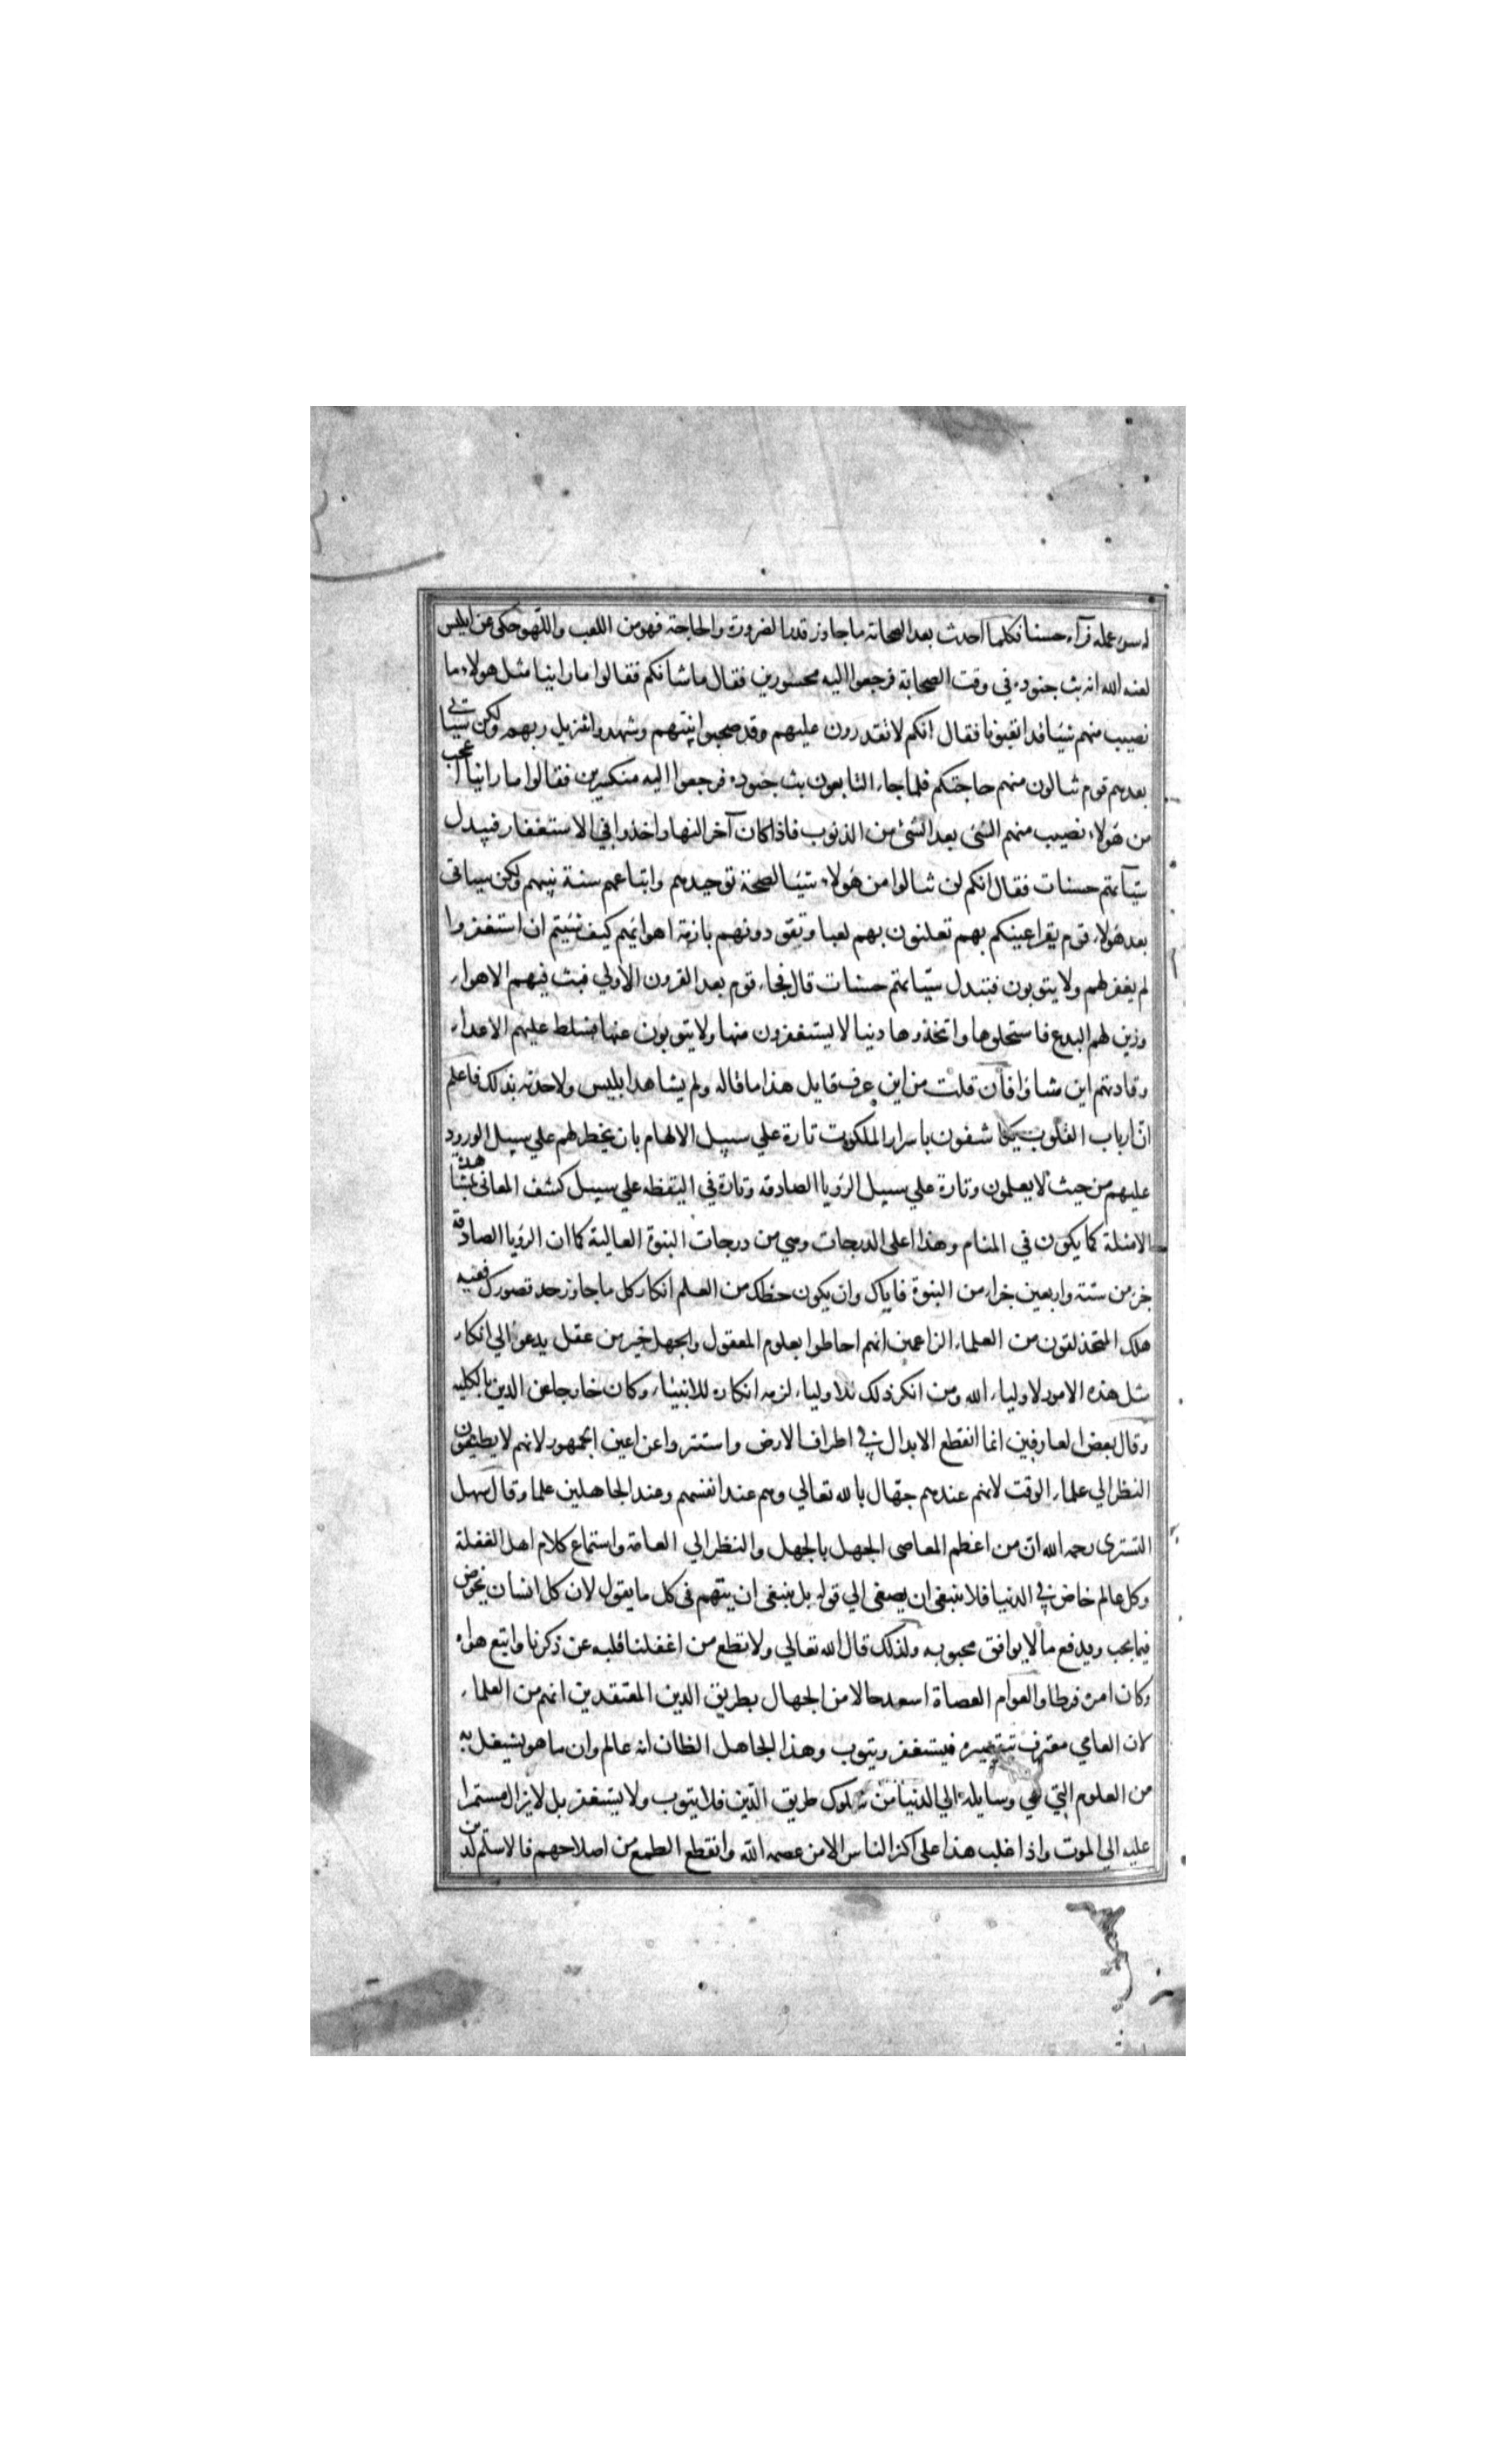 له سوء عمله فرآه حسنا فكلما احدث بعد الصحابة ما جاوز قدر الضرورة والحاجة فهو من اللعب واللهو حكى عن ابليس
لعنه الله انه بث جنوده في وقت الصحابة فرجعوا اليه محسورين فقال ما شانكم فقالوا ما راينا مثل هولاء ما
نصيب منهم شيئا قد اتعبونا فقال انكم لا تقدرون عليهم وقد صحبوا نبيهم وشهدوا تنزيل ربهم ولكن سياتي
بعدهم قوم تنالون منهم حاجتكم فلما جاء التابعون بث جنوده فرجعوا اليه منكسرين فقالوا ما راينا اعجب
من هولاء نصيب منهم الشئ بعد الشئ من الذنوب فاذا كان آخر النهار اخذوا في الاستغفار فيبدل
سيآتهم حسنات فقال انكم لن تنالوا من هولاء شيئا لصحة توحيدهم واتباعهم سنة نبيهم ولكن سياتي
بعد هولاء قوم يقر اعينكم بهم تعلبون بهم لعبا وتقودونهم بازمة اهوائهم كيف شئتم ان استغفروا
لم يغفر لهم ولا يتوبون فتبدل سيآتهم حسنات قال فجاء قوم بعد القرون الاولي فبث فيهم الاهواء
وزين لهم البدع فاستحلوها واتخذوها دينا لا يستغفرون منها ولا يتوبون عنها فسلط عليهم الاعداء
وقادتهم اين شاؤا فان قلت من اين عرف قايل هذا ما قاله ولم يشاهد ابليس ولا حدثه بذلك فاعلم
ان ارباب القلوب يكاشفون باسرار الملكوت تارة علي سبيل الالهام بان يخطر لهم علي سبيل الورود
عليهم من حيث لا يعلمون وتارة علي سبيل الرؤيا الصادقه وتارة في اليقظه علي سبيل كشف المعاني بمشاهدة
الامثلة كما يكون في المنام وهذا اعلى الدرجات وهي من درجات النبوة العالية كما ان الرؤيا الصادقة
جزء من ستة واربعين جزاء من النبوة فاياك وان يكون حظك من العلم انكار كل ما جاوز حد قصورك ففيه
هلك المتحذلقون من العلماء الزاعمين انهم احاطوا بعلوم المعقول والجهل خير من عقل يدعو الي انكار
مثل هذه الامور لاولياء الله ومن انكر ذلك للاولياء لزمه انكاره للانبياء وكان خارجا عن الدين بالكليه
وقال بعض العارفين انما انقطع الابدال في اطراف الارض واستتروا عن اعين الجمهور لانهم لا يطيقون
النظر الي علماء الوقت لانهم عندهم جهال بالله تعالي وهم عند انفسهم وعند الجاهلين علما وقال سهل
التسترى رحمه الله ان من اعظم المعاصى الجهل بالجهل والنظر الي العامة واستماع كلام اهل الغفلة
وكل عالم خاض في الدنيا فلا ينبغى ان يصغى الي قوله بل ينبغى ان يتهم فى كل ما يقول لان كل انسان يخوض
فيما يحب ويدفع ما لا يوافق محبوبه ولذلك قال الله تعالي ولا تطع من اغفلنا قلبه عن ذكرنا واتبع هواه
وكان امره فرطا والعوام العصاة اسعد حالا من الجهال بطريق الدين المعتقدين انهم من العلماء
لان العامي معترف بتقصيره فيستغفر ويتوب وهذا الجاهل الظان انه عالم وان ما هو يشتغل به
من العلوم التي هي وسايله الي الدنيا من سلوك طريق الدين فلا يتوب ولا يستغفر بل لا يزال مستمرا
عليه الي الموت واذا غلب هذا على اكثر الناس الا من عصمه الله وانقطع الطمع من اصلاحهم فالاسلم لدين